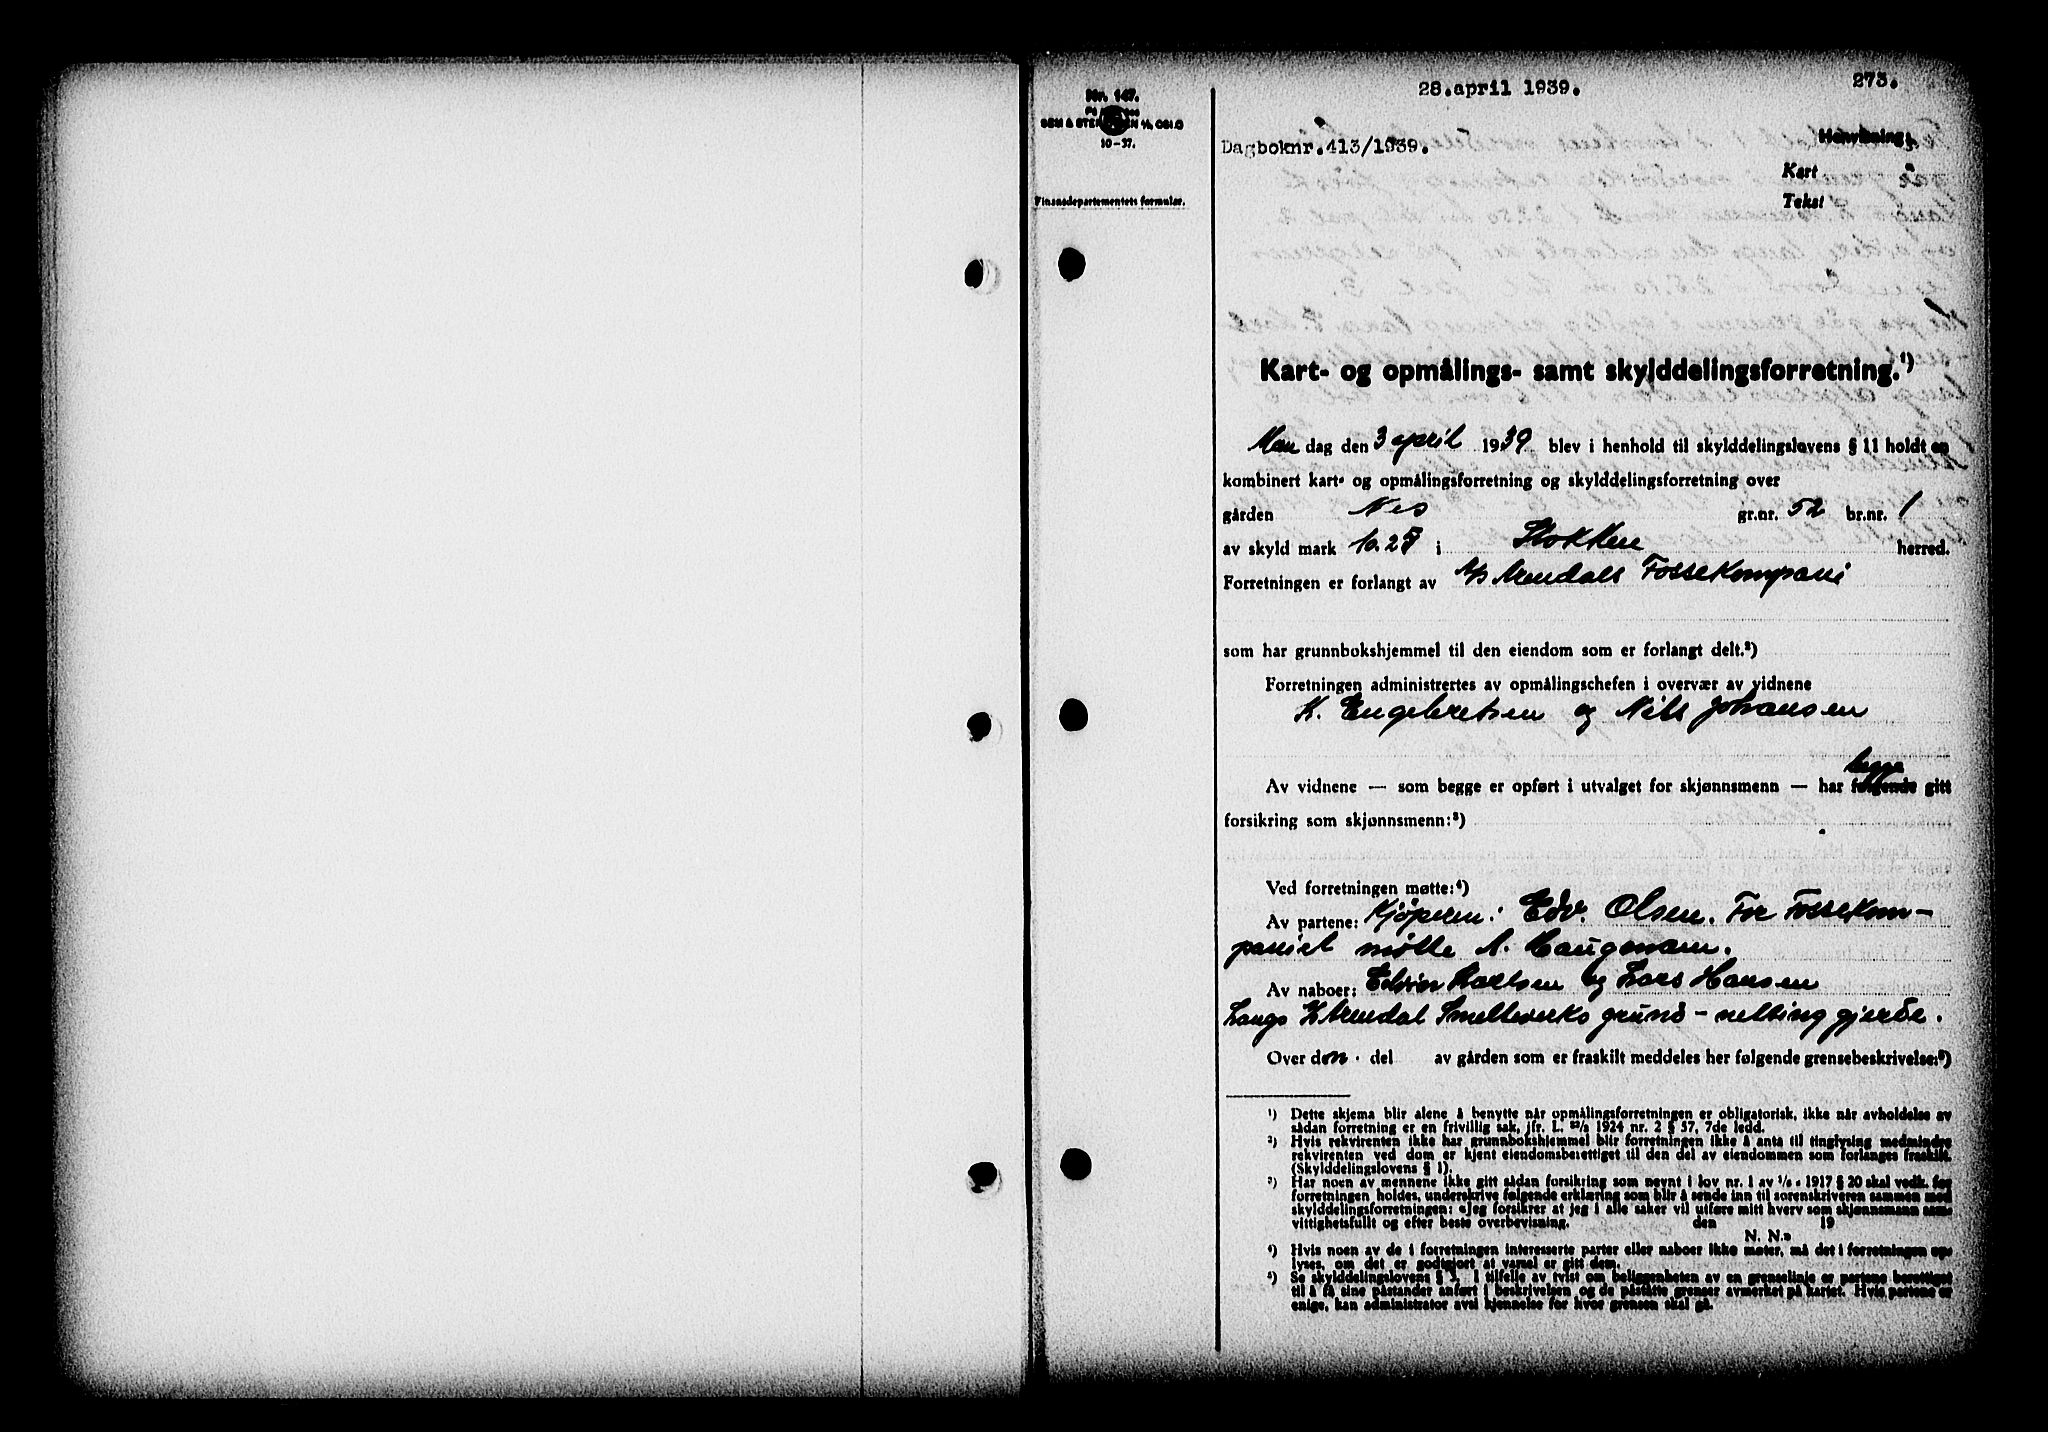 28.april 1939.
273.
Nr. 147.
SEM & STENERSEN A/S, OSLO
10-37.
Finansdepartementets formular.
Dagboknr.413/1939.
Henvisning:
Kart
Tekst
Kart- og opmålings- samt skylddelingsforretning.¹)
Man dag den 3 april 1939 blev i henhold til skylddelingslovens § 11 holdt en
kombinert kart- og opmålingsforretning og skylddelingsforretning over
gården Nes gr.nr. 52 br.nr. 1
av skyld mark 10.25 i Stokken herred.
Forretningen er forlangt av A/S Arendals Fossekompani
som har grunnbokshjemmel til den eiendom som er forlangt delt.²)
Forretningen administrertes av opmålingschefen i overvær av vidnene
K. Engebretsen og Nils Johansen
Av vidnene — som begge er opført i utvalget for skjønnsmenn — har begge følgende gitt
forsikring som skjønnsmenn:³)
Ved forretningen møtte:⁴)
Av partene: Kjøperen: Edv. Olsen. For Fossekom-
paniet møtte A. Haugmann.
Av naboer: Edvin Karlsen og Lars Hansen
Langs Arendal Smelteverks grund - netting gjerde.
Over den del av gården som er fraskilt meddeles her følgende grensebeskrivelse:⁵)
¹) Dette skjema blir alene å benytte når opmålingsforretningen er obligatorisk, ikke når avholdelse av
sådan forretning er en frivillig sak, jfr. L. ²²/₂ 1924 nr. 2 § 57, 7de ledd.
²) Hvis rekvirenten ikke har grunnbokshjemmel blir forretningen ikke å anta til tinglysing medmindre
rekvirenten ved dom er kjent eiendomsberettiget til den del av eiendommen som forlanges fraskilt.
(Skylddelingslovens § 1).
³) Har noen av mennene ikke gitt sådan forsikring som nevnt i lov nr. 1 av ¹/₆ 1917 § 20 skal vedk. før
forretningen holdes, underskrive følgende erklæring som blir å sende inn til sorenskriveren sammen med
skylddelingsforretningen: «Jeg forsikrer at jeg i alle saker vil utføre mitt hverv som skjønnsmann sam-
vittighetsfullt og efter beste overbevisning. den 19
N. N.»
⁴) Hvis noen av de i forretningen interesserte parter eller naboer ikke møter, må det i forretningen op-
lyses, om det er godtgjort at varsel er gitt dem.
⁵) Se skylddelingslovens § I tilfelle av tvist om beliggenheten av en grenselinje er partene berettiget
til å få sine påstander anført i beskrivelsen og de påståtte grenser avmerket på kartet. Hvis partene er
enige, kan administrator avsi kjennelse for hvor grensen skal gå.